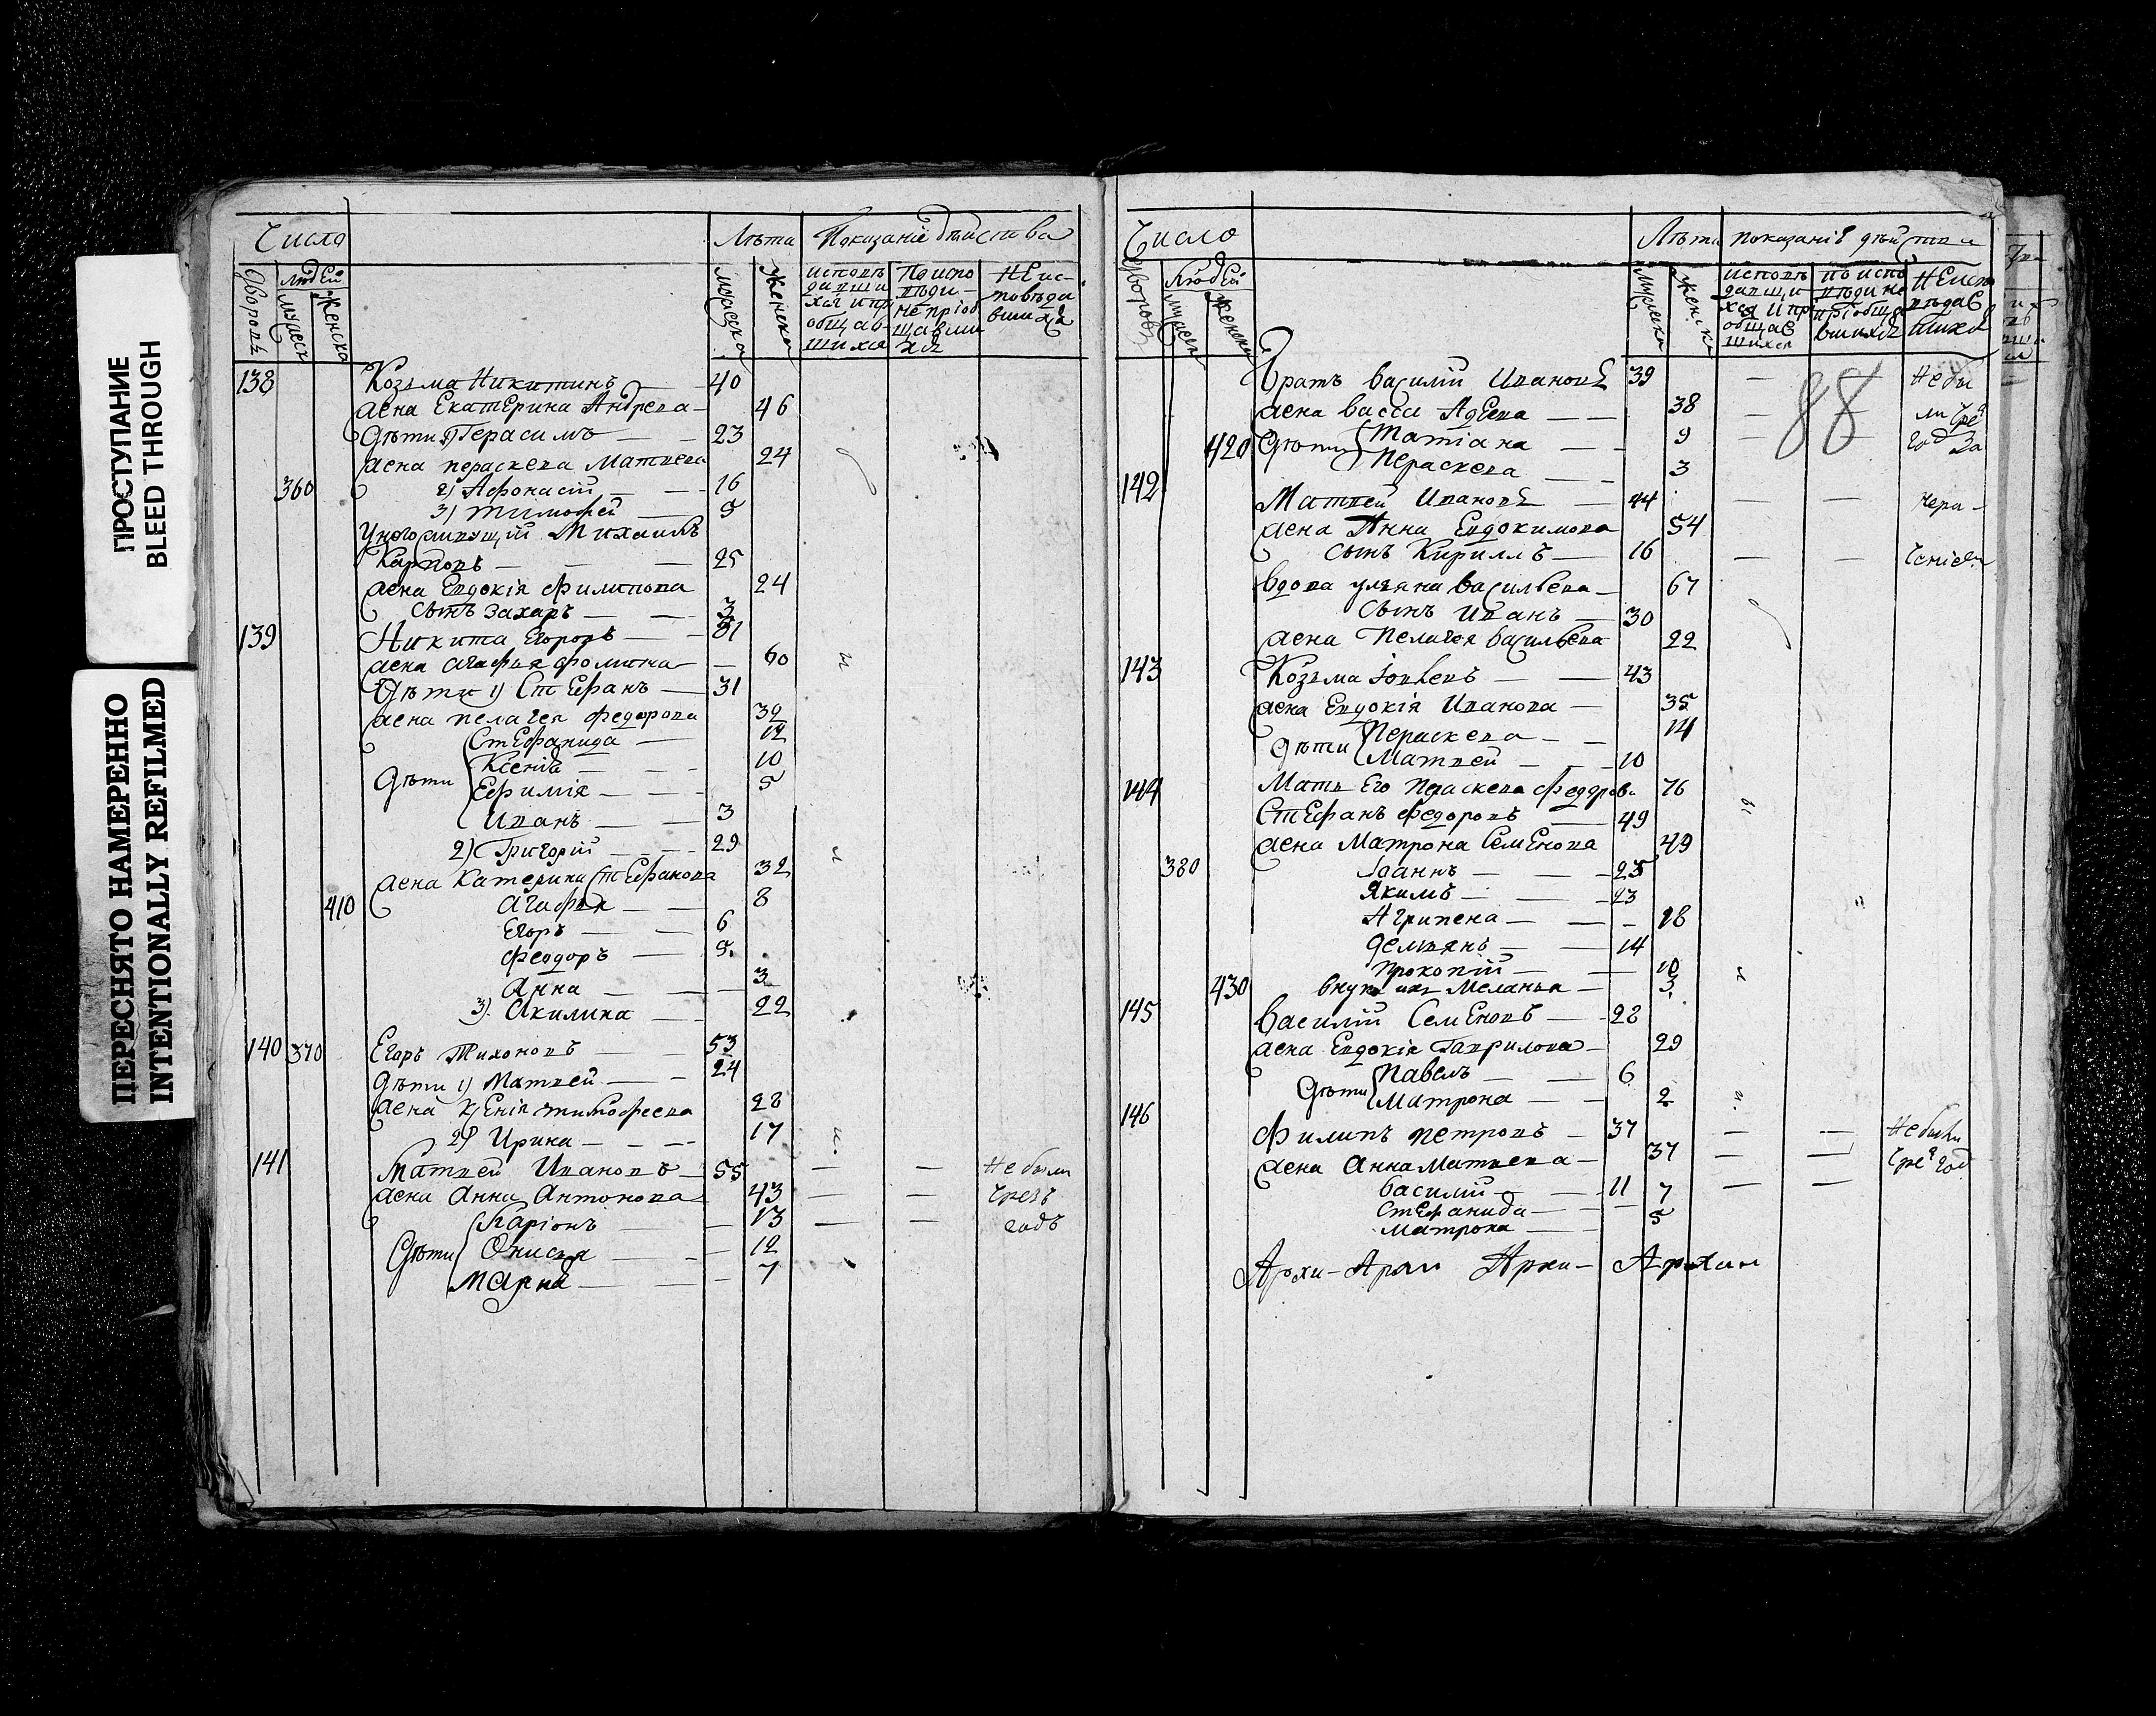 ПРОСТУПАНИЕ
BLEED THROUGH
ПЕРЕСНЯТО НАМЕРЕННО
INTENTIONALLY REFILMED
Число Лѣта Показаніе дѣйства
Дворовъ Людей мужеск женска мужеска женска исповѣдавшихся и приобщавшихся По исповѣди не пріобщавшихся Не исповѣдавшихся
138 Козьма Никитинъ — 40
жена Екатерина Андреева — 46
Дѣти 1) Герасимъ — 23
жена Параскева Матвеева 24
360 2) Афонасій — 16
3) Тимофей — 5
Михаилъ
Карповъ — 25
жена Евдокія Филипова 24
сынъ Захаръ — 3
139 Никита Егоровъ — 81
жена Агафья Фомина — 60
Дѣти 1) Стефанъ — 31
жена Пелагея Федорова 32
Стефанида — 12
Ксенія — 10
Дѣти Ефимія — 5
Иванъ — 3
2) Григорій — 29
жена Катерина Стефанова 32
410 Агафья — 8
Егоръ — 6
Феодоръ — 5
Анна — 3
3) Акилина — 22
140 370 Егоръ Тихоновъ — 53
Дѣти 1) Матвей — 24
жена Ксенія Тимофеева 28
2) Ирина — 17
141 Матвей Ивановъ — 55 — — Не были
жена Анна Антонова 43 — — чрезъ
Каріонъ — 13 — — годъ
Дѣти Онисья — 12
Марѳа — 7
Число Лѣта показаніе дѣйства
Дворовъ Людей мужеск женска мужеска женска исповѣдавшихся и приобщавшихся по исповѣди не пріобщавшихся Не исповѣдавшихся
88
братъ Василій Ивановъ 39 — Не бы
жена Васса Авдеева — 38 — ли чрез
420 Дѣти Татіана — 9 — год За
Параскева — 3
142 Матвей Ивановъ — 44 — — нера-
жена Анна Евдокимова 54
сынъ Кириллъ — 16 — —
вдова Уляна Васильева — 67
сынъ Иванъ — 30
жена Пелагея Васильева 22
143 Козьма Іовлевъ — 43
жена Евдокія Иванова — 35
Дѣти Параскева — 14
Матвей — 10
144 Мать Его Параскева Федорова 76
Стефанъ Федоровъ — 49
жена Матрона Семенова 49
380 Іоаннъ — 25
Якимъ — 23
Агрипена — 18
Демьянъ — 14
Прокопій — 10
430 внука их Меланья — 3
145 Василій Семеновъ — 28
жена Евдокія Гаврилова — 29
Дѣти Павелъ — 6
Матрона — 2
146 Филипъ Петровъ — 37 — — Не были
жена Анна Матвеева — 37 — — чрез год
Василій — 11 — —
Стефанида — 7
Матрона — 5